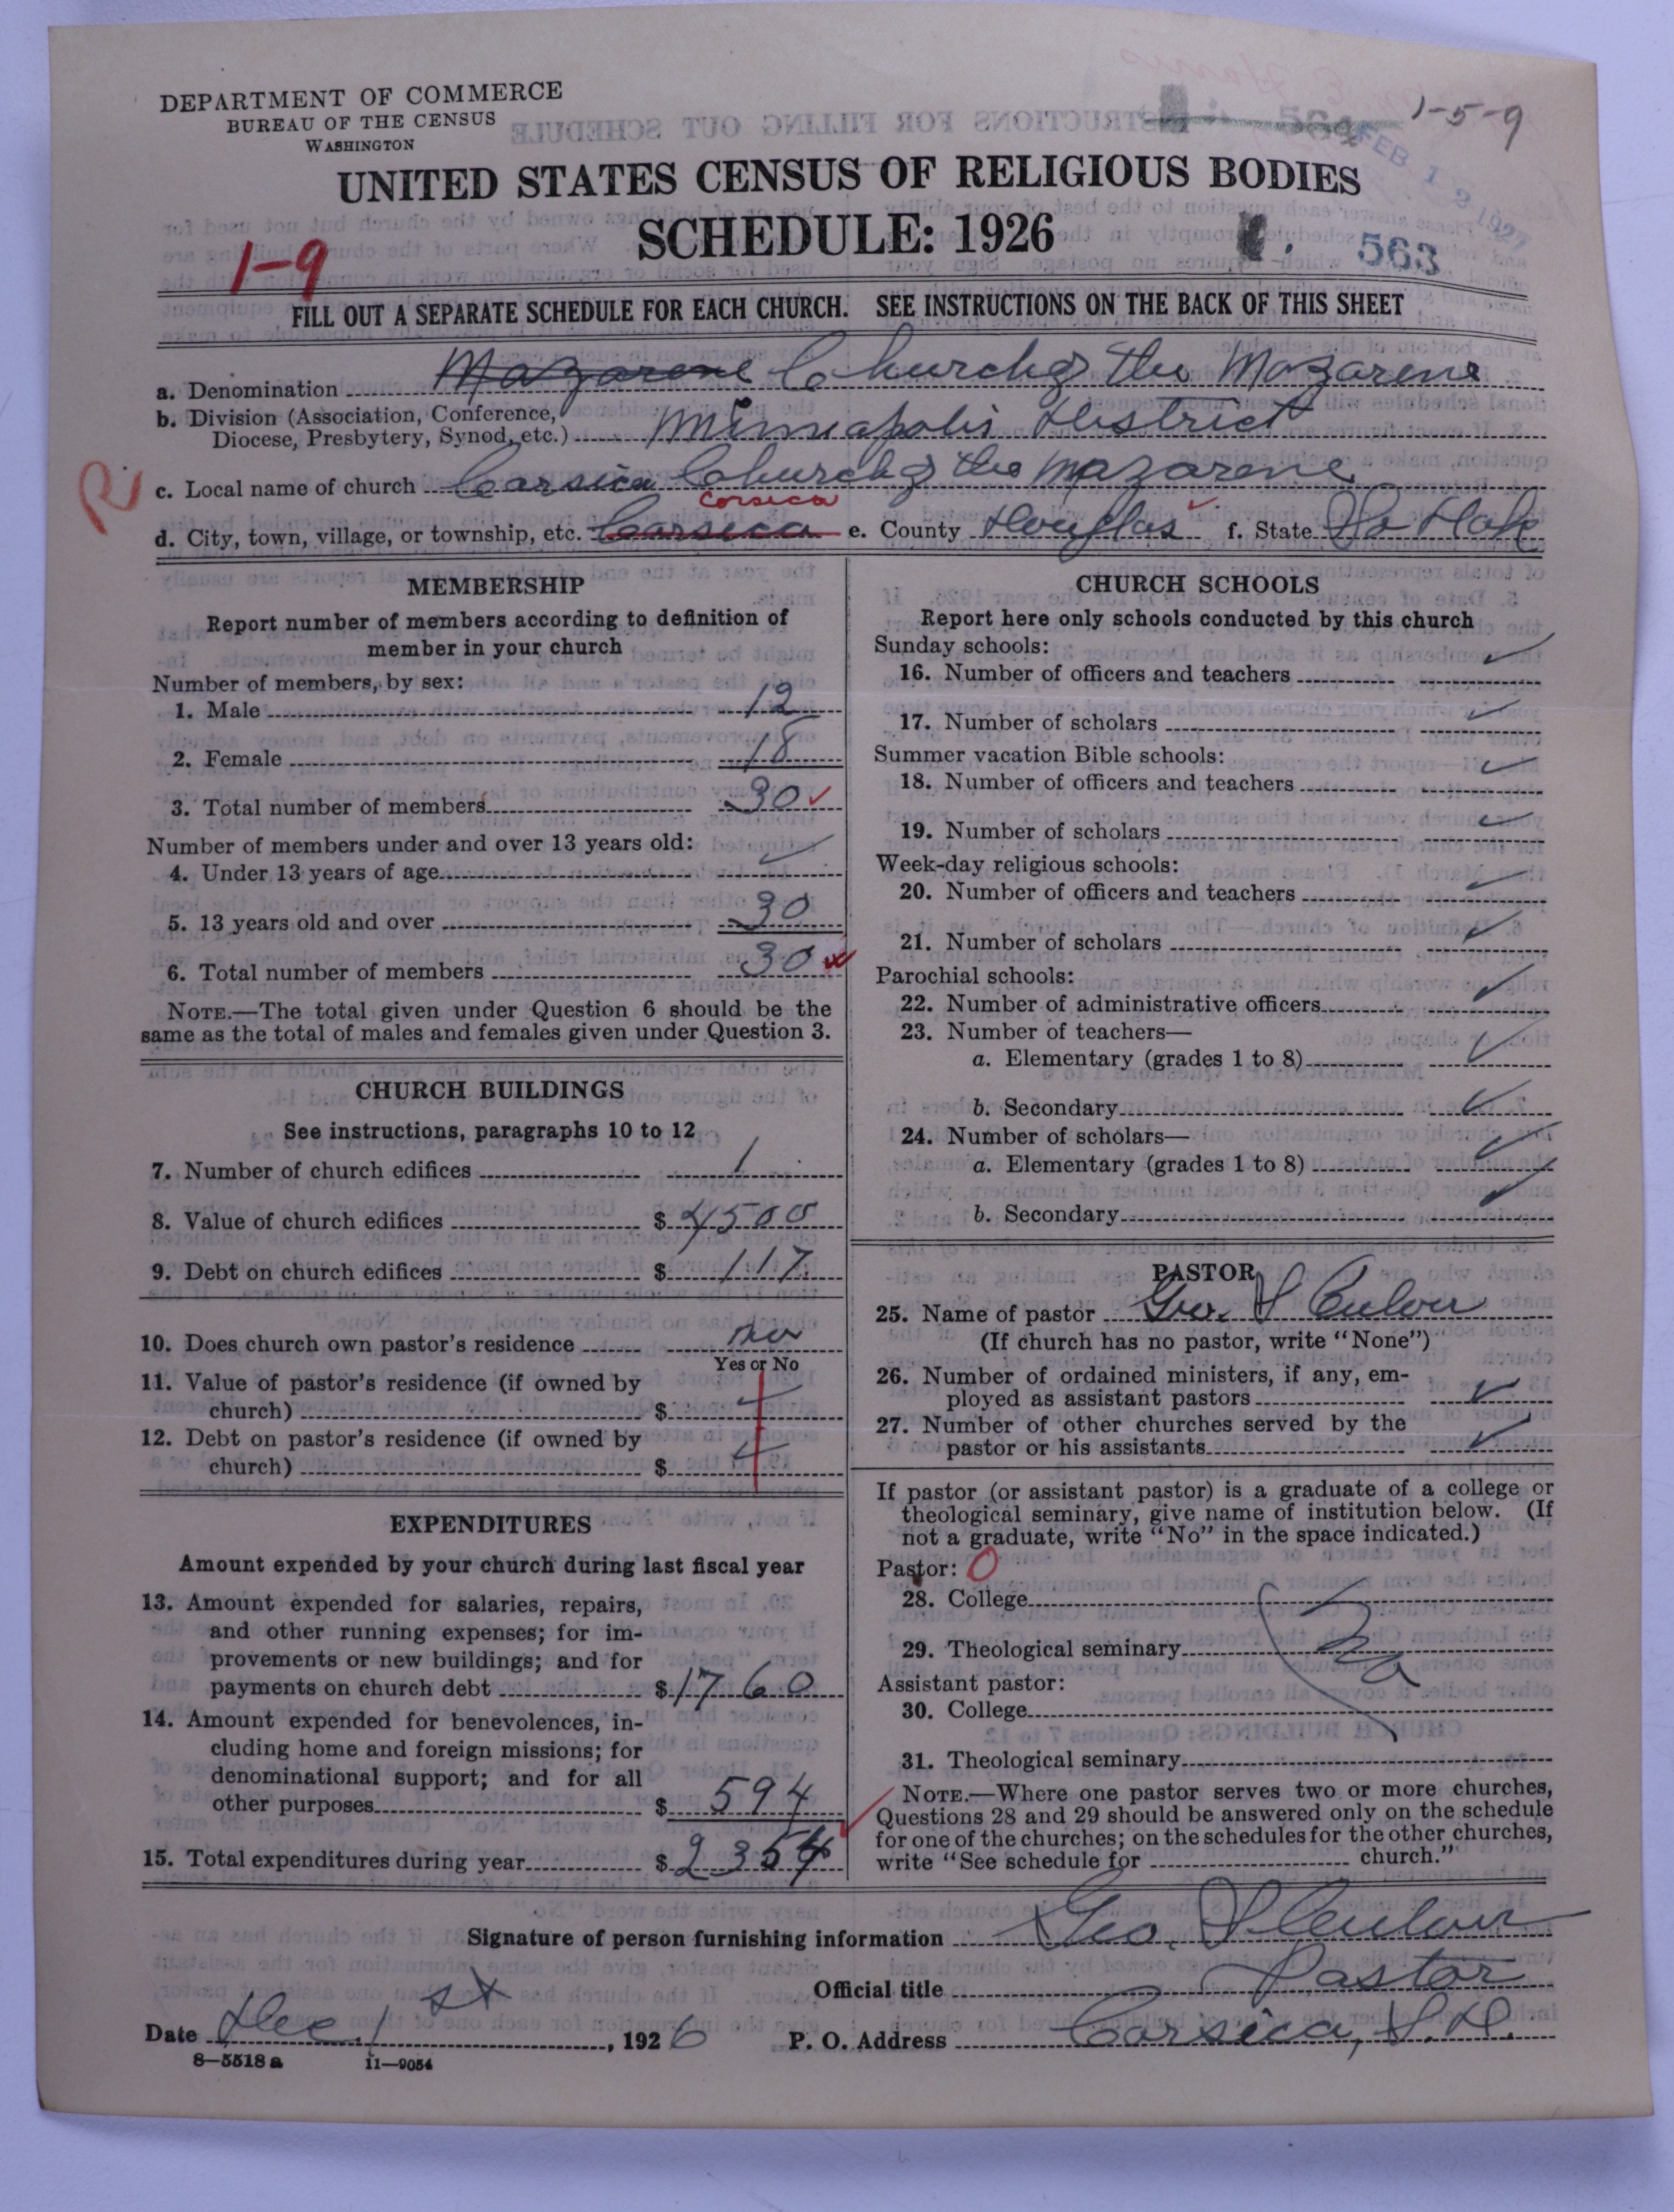 DEPARTMENT OF COMMERCE
BUREAU OF THE CENSUS
WASHINGTON
1-5-9
564
FEB 12 1927
UNITED STATES CENSUS OF RELIGIOUS BODIES
SCHEDULE: 1926
1-9
563
FILL OUT A SEPARATE SCHEDULE FOR EACH CHURCH. SEE INSTRUCTIONS ON THE BACK OF THIS SHEET
a. Denomination Nazarene Church of the Nazarene
b. Division (Association, Conference,
Diocese, Presbytery, Synod, etc.) Minneapolis District
R
c. Local name of church Corsica Church of the Nazarene
Corsica
d. City, town, village, or township, etc. Corsica e. County Douglas f. State So Dak
MEMBERSHIP
Report number of members according to definition of
member in your church
Number of members, by sex:
1. Male 12
2. Female 18
3. Total number of members 30
Number of members under and over 13 years old:
4. Under 13 years of age
5. 13 years old and over 30
6. Total number of members 30
NOTE.—The total given under Question 6 should be the
same as the total of males and females given under Question 3.
CHURCH BUILDINGS
See instructions, paragraphs 10 to 12
7. Number of church edifices 1
8. Value of church edifices $ 4500
9. Debt on church edifices $ 117.
10. Does church own pastor's residence no
Yes or No
11. Value of pastor's residence (if owned by
church) $
12. Debt on pastor's residence (if owned by
church) $
EXPENDITURES
Amount expended by your church during last fiscal year
13. Amount expended for salaries, repairs,
and other running expenses; for im-
provements or new buildings; and for
payments on church debt $ 1760
14. Amount expended for benevolences, in-
cluding home and foreign missions; for
denominational support; and for all
other purposes $ 594
15. Total expenditures during year $ 2354
CHURCH SCHOOLS
Report here only schools conducted by this church
Sunday schools:
16. Number of officers and teachers
17. Number of scholars
Summer vacation Bible schools:
18. Number of officers and teachers
19. Number of scholars
Week-day religious schools:
20. Number of officers and teachers
21. Number of scholars
Parochial schools:
22. Number of administrative officers
23. Number of teachers—
a. Elementary (grades 1 to 8)
b. Secondary
24. Number of scholars—
a. Elementary (grades 1 to 8)
b. Secondary
PASTOR
25. Name of pastor Geo. S Culver
(If church has no pastor, write "None")
26. Number of ordained ministers, if any, em-
ployed as assistant pastors
27. Number of other churches served by the
pastor or his assistants
If pastor (or assistant pastor) is a graduate of a college or
theological seminary, give name of institution below. (If
not a graduate, write "No" in the space indicated.)
Pastor: 0
28. College
29. Theological seminary
Assistant pastor:
30. College
31. Theological seminary
NOTE.—Where one pastor serves two or more churches,
Questions 28 and 29 should be answered only on the schedule
for one of the churches; on the schedules for the other churches,
write "See schedule for church."
Signature of person furnishing information Geo. S Culver
Official title Pastor
Date Dec. 1st, 1926 P. O. Address Corsica, S.D.
8—5518a 11—9054